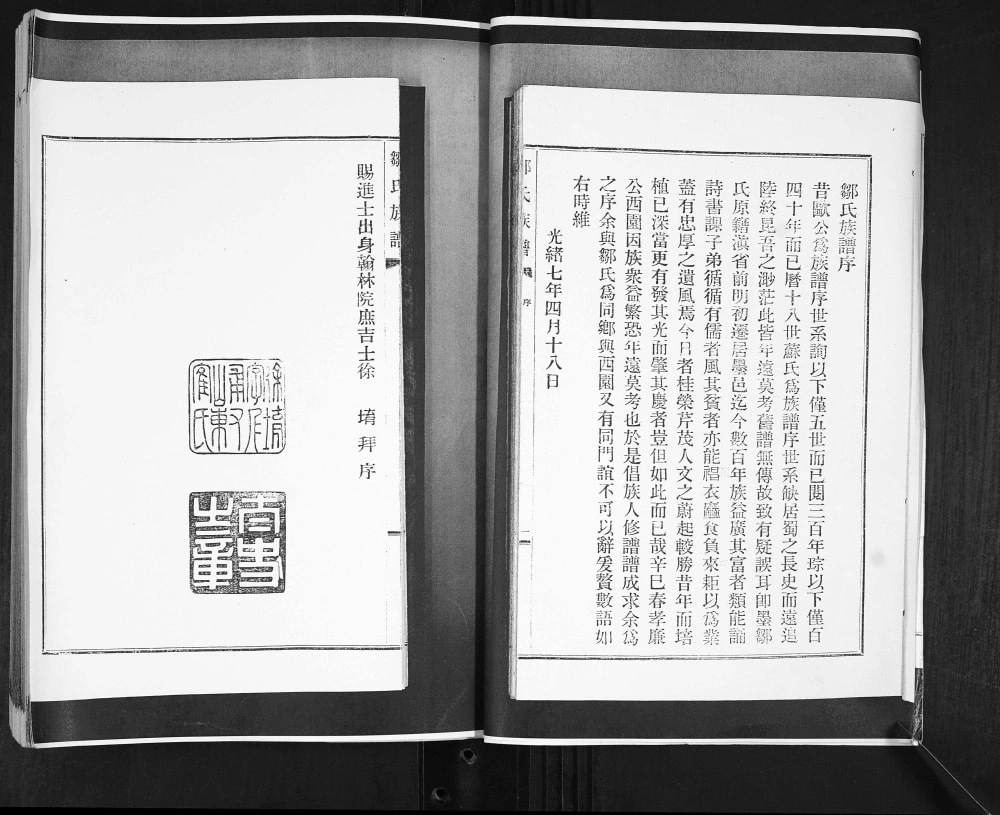 鄒氏族譜序
昔歐公爲族譜序世系詢以下僅五世而已閱三百年琮以下僅百
四十年而已曆十八世蘇氏爲族譜序世系缺居蜀之長史而遠追
陸終昆吾之渺茫此皆年遠莫考舊譜無傳故致有疑誤耳卽墨鄒
氏原籍滇省前明初遷居墨邑迄今數百年族益廣其富者類能誦
詩書課子弟循循有儒者風其貧者亦能裋衣麤食負耒耟以爲業
蓋有忠厚之遺風焉今日者桂榮芹茂人文之蔚起較勝昔年而培
植已深當更有發其光而肇其慶者豈但如此而已哉辛巳春孝廉
公西園因族衆益繁恐年遠莫考也於是倡族人修譜譜成求余爲
之序余與鄒氏爲同鄉與西園又有同門誼不可以辭爰贅數語如
右時維
光緒七年四月十八日
鄒氏族譜
序
一
鄒氏族譜
賜進士出身翰林院庶吉士徐 堉拜序